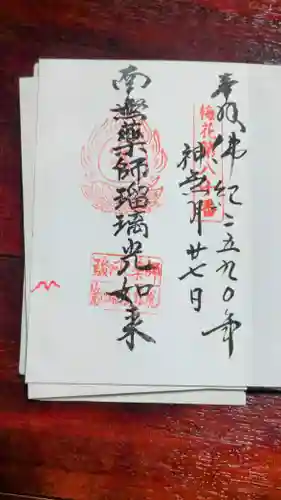 奉拝 佛紀二五九〇年
神無月廿七日
南無薬師瑠璃光如来